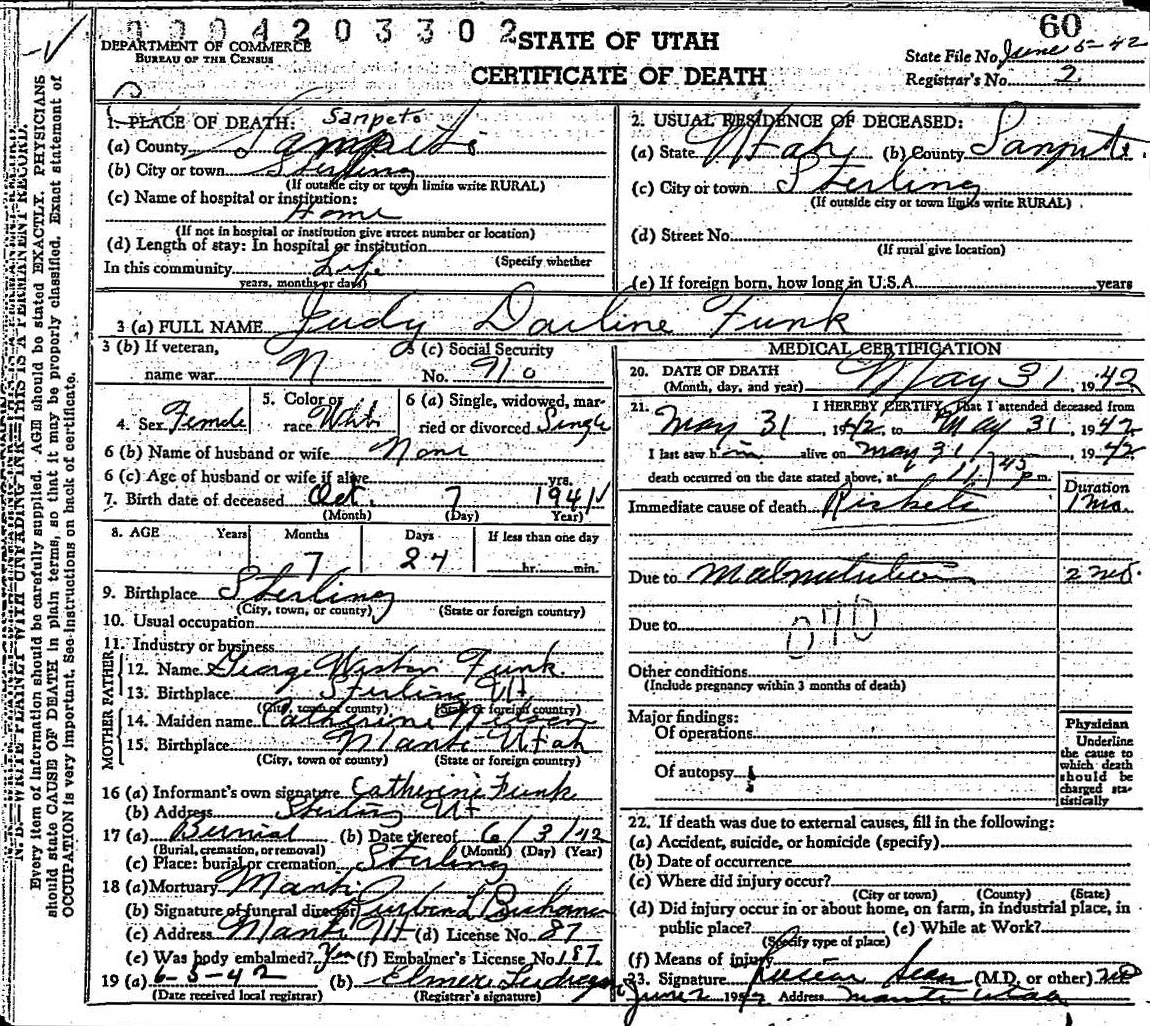 0004203302
60
DEPARTMENT OF COMMERCE
BUREAU OF THE CENSUS
STATE OF UTAH
CERTIFICATE OF DEATH
State File No. June 5-42
Registrar's No. 2
N. B.—WRITE PLAINLY WITH UNFADING INK—THIS IS A PERMANENT RECORD.
Every item of information should be carefully supplied. AGE should be stated EXACTLY. PHYSICIANS
should state CAUSE OF DEATH in plain terms, so that it may be properly classified. Exact statement of
OCCUPATION is very important. See instructions on back of certificate.
1. PLACE OF DEATH: Sanpete
(a) County Sanpete
(b) City or town Sterling
(If outside city or town limits write RURAL)
(c) Name of hospital or institution:
Home
(If not in hospital or institution give street number or location)
(d) Length of stay: In hospital or institution
(Specify whether
In this community Life
years, months or days)
2. USUAL RESIDENCE OF DECEASED:
(a) State Utah (b) County Sanpete
(c) City or town Sterling
(If outside city or town limits write RURAL)
(d) Street No.
(If rural give location)
(e) If foreign born, how long in U.S.A. years
3 (a) FULL NAME Judy Darline Funk
3 (b) If veteran,
name war N
3 (c) Social Security
No. No
4. Sex Female
5. Color or
race White
6 (a) Single, widowed, mar-
ried or divorced Single
6 (b) Name of husband or wife None
6 (c) Age of husband or wife if alive yrs.
7. Birth date of deceased Oct. 7 1941
(Month) (Day) (Year)
8. AGE Years Months Days If less than one day
7 24 hr. min.
9. Birthplace Sterling
(City, town, or county) (State or foreign country)
10. Usual occupation
11. Industry or business
FATHER
12. Name George Weston Funk
13. Birthplace Sterling Ut
(City, town or county) (State or foreign country)
MOTHER
14. Maiden name Catherine Nielsen
15. Birthplace Manti Utah
(City, town or county) (State or foreign country)
16 (a) Informant's own signature Catherine Funk
(b) Address Sterling Ut
17 (a) Burial (b) Date thereof 6/3/42
(Burial, cremation, or removal) (Month) (Day) (Year)
(c) Place: burial or cremation Sterling
18 (a) Mortuary Manti
(b) Signature of funeral director
(c) Address Manti Ut (d) License No. 87
(e) Was body embalmed? Yes (f) Embalmer's License No. 187
19 (a) 6-5-42 (b) Elmer
(Date received local registrar) (Registrar's signature)
MEDICAL CERTIFICATION
20. DATE OF DEATH
(Month, day, and year) May 31, 1942
21. I HEREBY CERTIFY, That I attended deceased from
May 31, 1942, to May 31, 1942
I last saw h im alive on May 31, 1942
death occurred on the date stated above, at 11:45 p m.
Duration
Immediate cause of death Rickets 1 mo.
Due to Malnutrition 2 mo.
Due to
070
Other conditions
(Include pregnancy within 3 months of death)
Major findings:
Of operations
Of autopsy
Physician
Underline
the cause to
which death
should be
charged sta-
tistically
22. If death was due to external causes, fill in the following:
(a) Accident, suicide, or homicide (specify)
(b) Date of occurrence
(c) Where did injury occur?
(City or town) (County) (State)
(d) Did injury occur in or about home, on farm, in industrial place, in
public place? (e) While at Work?
(Specify type of place)
(f) Means of injury
23. Signature Lucien Sears (M.D. or other) MD
June 2 1942 Address Manti Utah